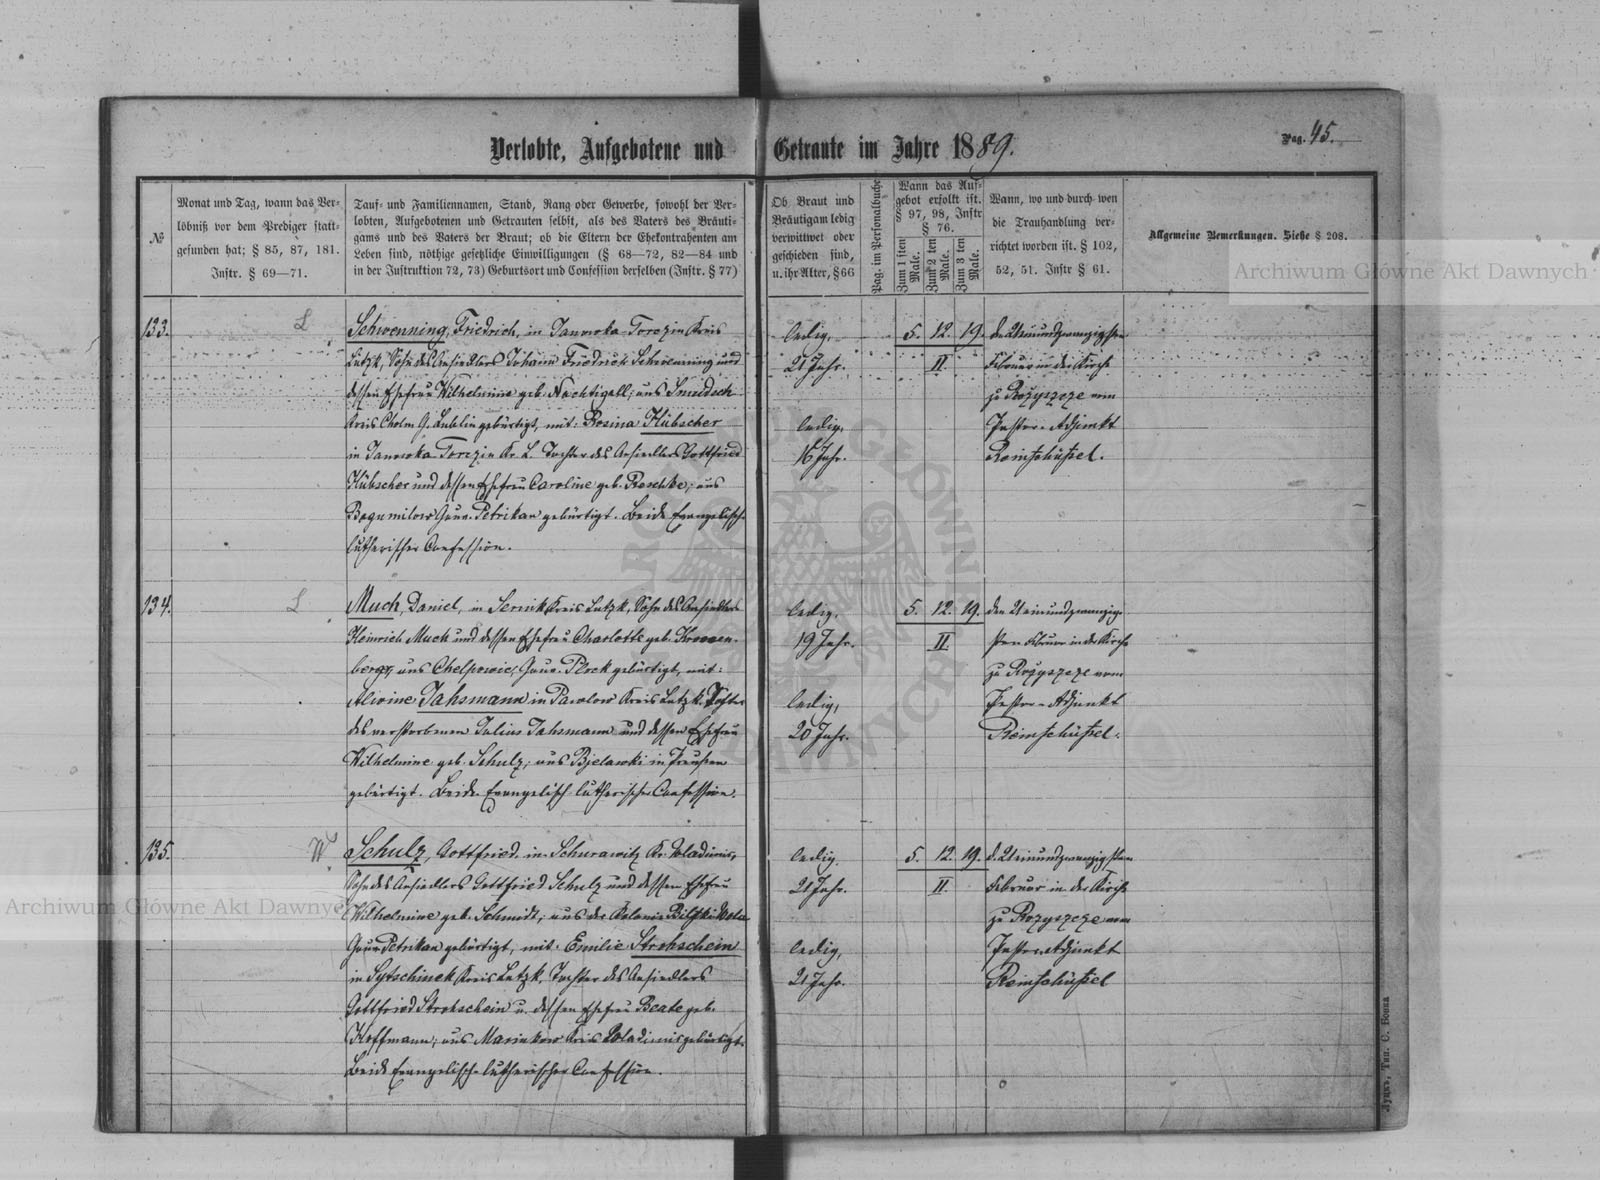 Verlobte, Aufgebotene und Getraute im Jahre 1889.
Pag. 45.
№
Monat und Tag, wann das Ver-
löbniß vor dem Prediger statt-
gefunden hat; § 85, 87, 181.
Instr. § 69—71.
Tauf- und Familiennamen, Stand, Rang oder Gewerbe, sowohl der Ver-
lobten, Aufgebotenen und Getrauten selbst, als des Vaters des Bräuti-
gams und des Vaters der Braut; ob die Eltern der Ehekontrahenten am
Leben sind, nöthige gesetzliche Einwilligungen (§ 68—72, 82—84 und
in der Instruktion 72, 73) Geburtsort und Confession derselben (Instr. § 77)
Ob Braut und
Bräutigam ledig
verwittwet oder
geschieden sind,
u. ihr Alter, § 66
Pag. im Personalbuche
Wann das Auf-
gebot erfolgt ist.
§ 97, 98, Instr
§ 76.
Zum 1 sten
Male.
Zum 2 ten
Male.
Zum 3 ten
Male.
Wann, wo und durch wen
die Trauhandlung ver-
richtet worden ist. § 102,
52, 51. Instr § 61.
Allgemeine Bemerkungen. Siehe § 208.
133.
L
Schwenning, Friedrich, in Janowka-Torczin Kreis
Lutzk, Sohn des Ansiedlers Johann Friedrich Schwenning und
dessen Ehefrau Wilhelmine geb. Nachtigall; aus
Kreis Cholm G. Lublin gebürtigt, mit: Rosina Hübscher
in Janowka-Torczin Kr. L. Tochter des Ansiedlers Gottfried
Hübscher und dessen Ehefrau Caroline geb. Reschke; aus
Bogumilow Gouv. Petrikau gebürtigt. Beide Evangelisch-
lutherischer Confession.
ledig,
21 Jahr.
ledig,
16 Jahr.
5. 12. 19.
II.
d. Einundzwanzigsten
Februar in der Kirche
zu Rożyszcze vom
Pastor-Adjunkt
Reimschüssel.
134.
L
Much, Daniel, in Sernik Kreis Lutzk, Sohn des Ansiedlers
Heinrich Much und dessen Ehefrau Charlotte geb. Kronen-
berg, aus Gouv. Plock gebürtigt, mit:
Alwine Jahsmann in Pawlow Kreis Lutzk, Tochter
des verstorbenen Julius Jahsmann und dessen Ehefrau
Wilhelmine geb. Schulz; aus Bjelawki in Preußen
gebürtigt. Beide Evangelisch-lutherischer Confession.
ledig,
19 Jahr.
ledig,
20 Jahr.
5. 12. 19.
II.
den Einundzwanzig-
sten Februar in der Kirche
zu Rożyszcze vom
Pastor-Adjunkt
Reimschüssel.
135.
Schulz, Gottfried in Schurawitz Kr. Wladimir,
Sohn des Ansiedlers Gottfried Schulz und dessen Ehefrau
Wilhelmine geb. Schmidt; aus der Kolonie
Gouv. Petrikau gebürtigt, mit: Emilie Strohschein
in Sytschinek Kreis Lutzk, Tochter des Ansiedlers
Gottfried Strohschein u. dessen Ehefrau Beate geb.
Hoffmann; aus Marinkow Kreis Wladimir gebürtigt.
Beide Evangelisch-lutherischer Confession.
ledig.
21 Jahr.
ledig,
21 Jahr.
5. 12. 19.
II.
d. Einundzwanzigsten
Februar in der Kirche
zu Rożyszcze vom
Pastor-Adjunkt
Reimschüssel
Archiwum Główne Akt Dawnych
Archiwum Główne Akt Dawnych